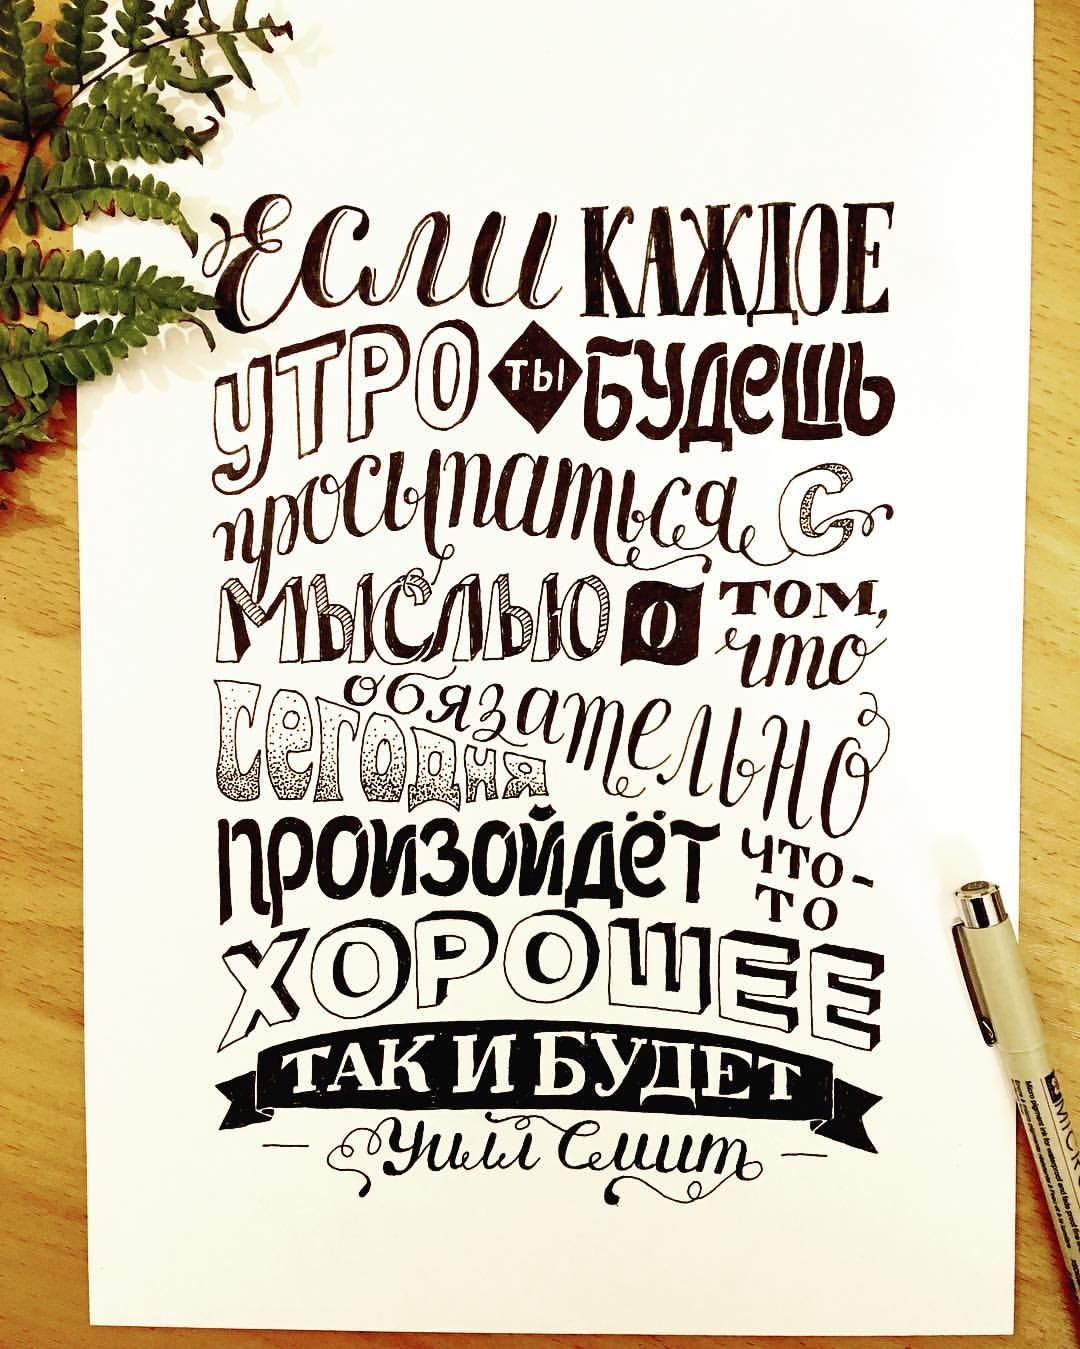 Если КАЖДОЕ
УТРО ТЫ БУДЕШЬ
просыпаться с
МЫСЛЬЮ О ТОМ,
что
сегодня обязательно
ПРОИЗОЙДЁТ ЧТО-
ТО
ХОРОШЕЕ
ТАК И БУДЕТ
— Уилл Смит —